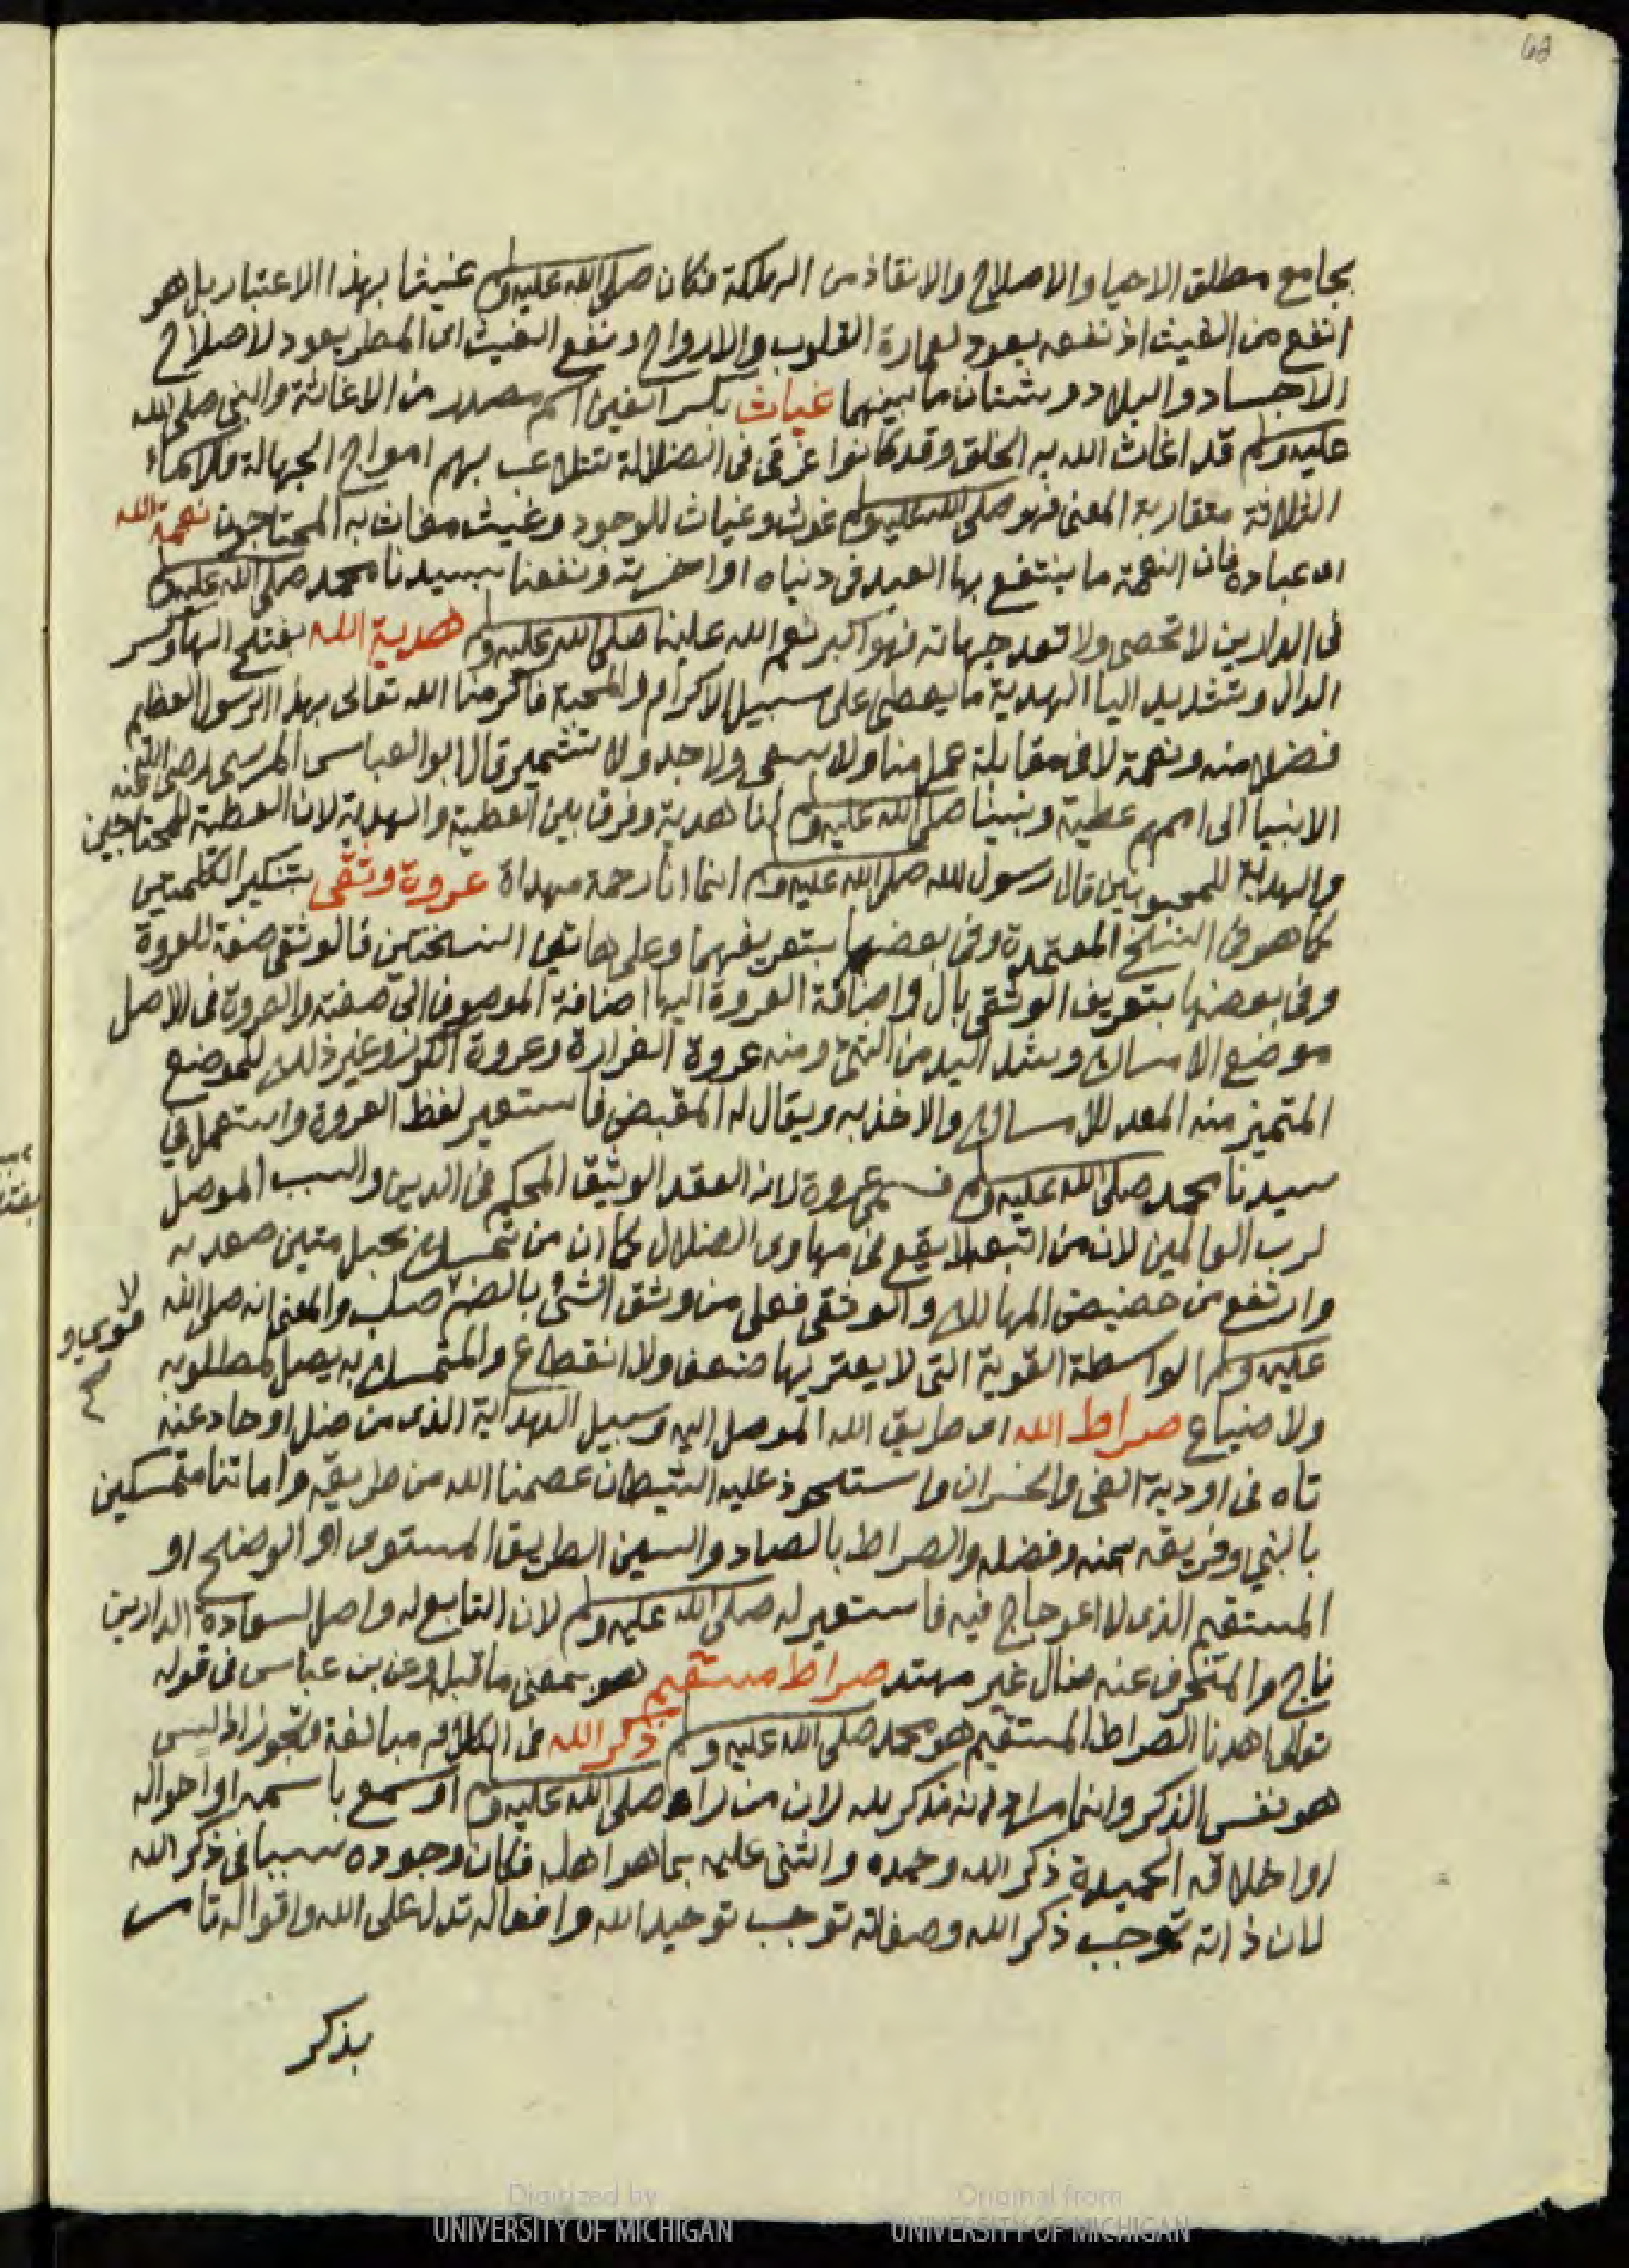 62
بجامع مطلق الاحيا والاصلاح والانقاذ من الهلكة فكان صلى الله عليه وسلم غيثا بهذا الاعتبار بل هو
انفع من الغيث اذ نفعه يعود لعمارة القلوب والارواح ونفع الغيث اى المطر يعود لاصلاح
الاجساد والبلاد وشتان ما بينهما غياث بكسر الغين اسم مصدر من الاغاثة والنبى صلى الله
عليه وسلم قد اغاث الله به الخلق وقد كانوا غرقى فى الضلالة تتلاعب بهم امواج الجهالة فالاسماء
الثلاثة متقاربة المعنى فهو صلى الله عليه وسلم غوث وغياث للوجود وغيث مغاث به المحتاجون نعمة الله
اى عباده فان النعمة ما ينتفع بها العبد فى دنياه او اخرته ونفعنا بسيدنا محمد صلى الله عليه وسلم
فى الدارين لا تحصى ولا تعد جهاته فهو اكبر نعم الله علينا صلى الله عليه وسلم هدية الله بفتح الها وكسر
الدال وتشديد اليا الهدية ما يعطى على سبيل الاكرام والمحبة فاكرمنا الله تعالى بهذا الرسول العظيم
فضلا منه ونعمة لا فى مقابلة عمل منا ولا سعى ولا جد ولا تشمير قال ابو العباس المرسى رضى الله عنه
الانبيا الى اممهم عطية ونبينا صلى الله عليه وسلم لنا هدية وفرق بين العطية والهدية لان العطية للمحتاجين
والهدية للمحبوبين قال رسول الله صلى الله عليه وسلم انما انا رحمة مهداة عروة وثقى بتنكير الكلمتين
كما هو فى النسخ المعتمدة وفى بعضها بتعريفهما وعلى هاتين النسختين فالوثقى صفة للعروة
وفى بعضها بتعريف الوثقى بال واضافة العروة اليها اضافة الموصوف الى صفته والعروة فى الاصل
موضع الامساك وشد اليد من الشئ ومنه عروة الغرارة وعروة الكوز وغير ذلك للموضع
المتميز منه المعد للامساك والاخذ به ويقال له المقبض فاستعير لفظ العروة واستعمل فى
سيدنا محمد صلى الله عليه وسلم فسمى عروة لانه العقد الوثيق المحكم فى الدين والسبب الموصل
لرب العالمين لان من اتبعه لا يقع فى مهاوى الضلال كما ان من تمسك بحبل متين صعد به
وارتفع من حضيض المهالك والوثقى فعلى من وثق الشئ بالضم صلب والمعنى انه صلى الله
عليه وسلم الواسطة القوية التى لا يعتريها ضعف ولا انقطاع والمتمسك به يصل لمطلوبه
ولا ضياع صراط الله اى طريق الله الموصل اليه وسبيل الهداية الذى من ضل او حاد عنه
تاه فى اودية الغى والخسران واستحوذ عليه الشيطان عصمنا الله من طريقه واماتنا متمسكين
بالنبى وفريقه بمنه وفضله والصراط بالصاد والسين الطريق المستوى او الواضح او
المستقيم الذى لا اعوجاج فيه فاستعير له صلى الله عليه وسلم لان التابع له واصل لسعادة الدارين
ناج والمنحرف عنه ضال غير مهتد صراط مستقيم هو بمعنى ما قبله وعن بن عباس فى قوله
تعالى اهدنا الصراط المستقيم هو محمد صلى الله عليه وسلم ذكر الله فى الكلام مبالغة وتجوز اذ ليس
هو نفس الذكر وانما مراده انه مذكر بالله لان من راه صلى الله عليه وسلم او سمع باسمه او احواله
او اخلاقه الحميدة ذكر الله وحمده واثنى عليه بما هو اهله فكان وجوده سببا فى ذكر الله
لان ذاته توجب ذكر الله وصفاته توجب توحيد الله وافعاله تدل على الله واقواله تامر
بذكر
Digitized by
UNIVERSITY OF MICHIGAN
Original from
UNIVERSITY OF MICHIGAN